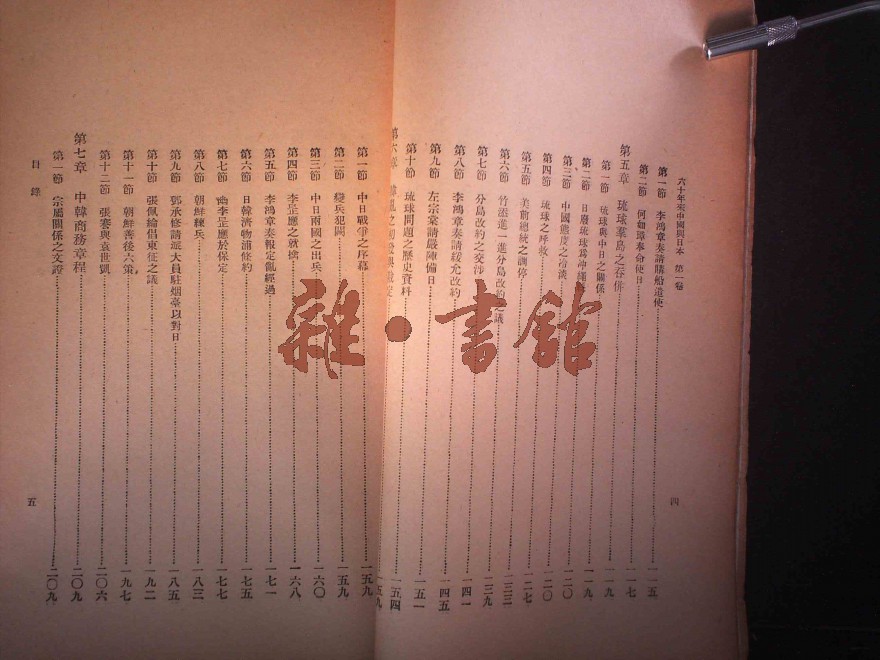 六十年來中國與日本 第一卷
四
第一節 李鴻章奏請購船遣使……一一五
第二節 何如璋奉命使日……一一七
第五章 琉球羣島之吞併……一一九
第一節 琉球與中日之關係……一一九
第二節 日廢琉球爲沖繩……一二〇
第三節 中國態度之冷淡……一二〇
第四節 琉球之呼救……一二七
第五節 美前總統之調停……一三三
第六節 竹添進一進分島改約之議……一三九
第七節 分島改約之交涉……一四一
第八節 李鴻章奏請緩允改約……一四五
第九節 左宗棠請嚴陣備日……一五一
第十節 琉球問題之歷史資料……一五四
第六章 韓亂之初發與……一五九
第一節 中日戰爭之序幕……一五九
第二節 變兵犯闕……一五九
第三節 中日兩國之出兵……一六〇
第四節 李昰應之就擒……一六八
第五節 李鴻章奏報定亂經過……一七一
第六節 日韓濟物浦條約……一七五
第七節 幽李昰應於保定……一七七
第八節 朝鮮練兵……一八三
第九節 郭承修請派大員駐烟臺以對日……一八五
第十節 張佩綸倡東征之議……一九二
第十一節 朝鮮善後六策……一九七
第十二節 張謇與袁世凱……二〇六
第七章 中韓商務章程……二〇九
第一節 宗屬關係之文證……二〇九
目錄
五
雜·書館